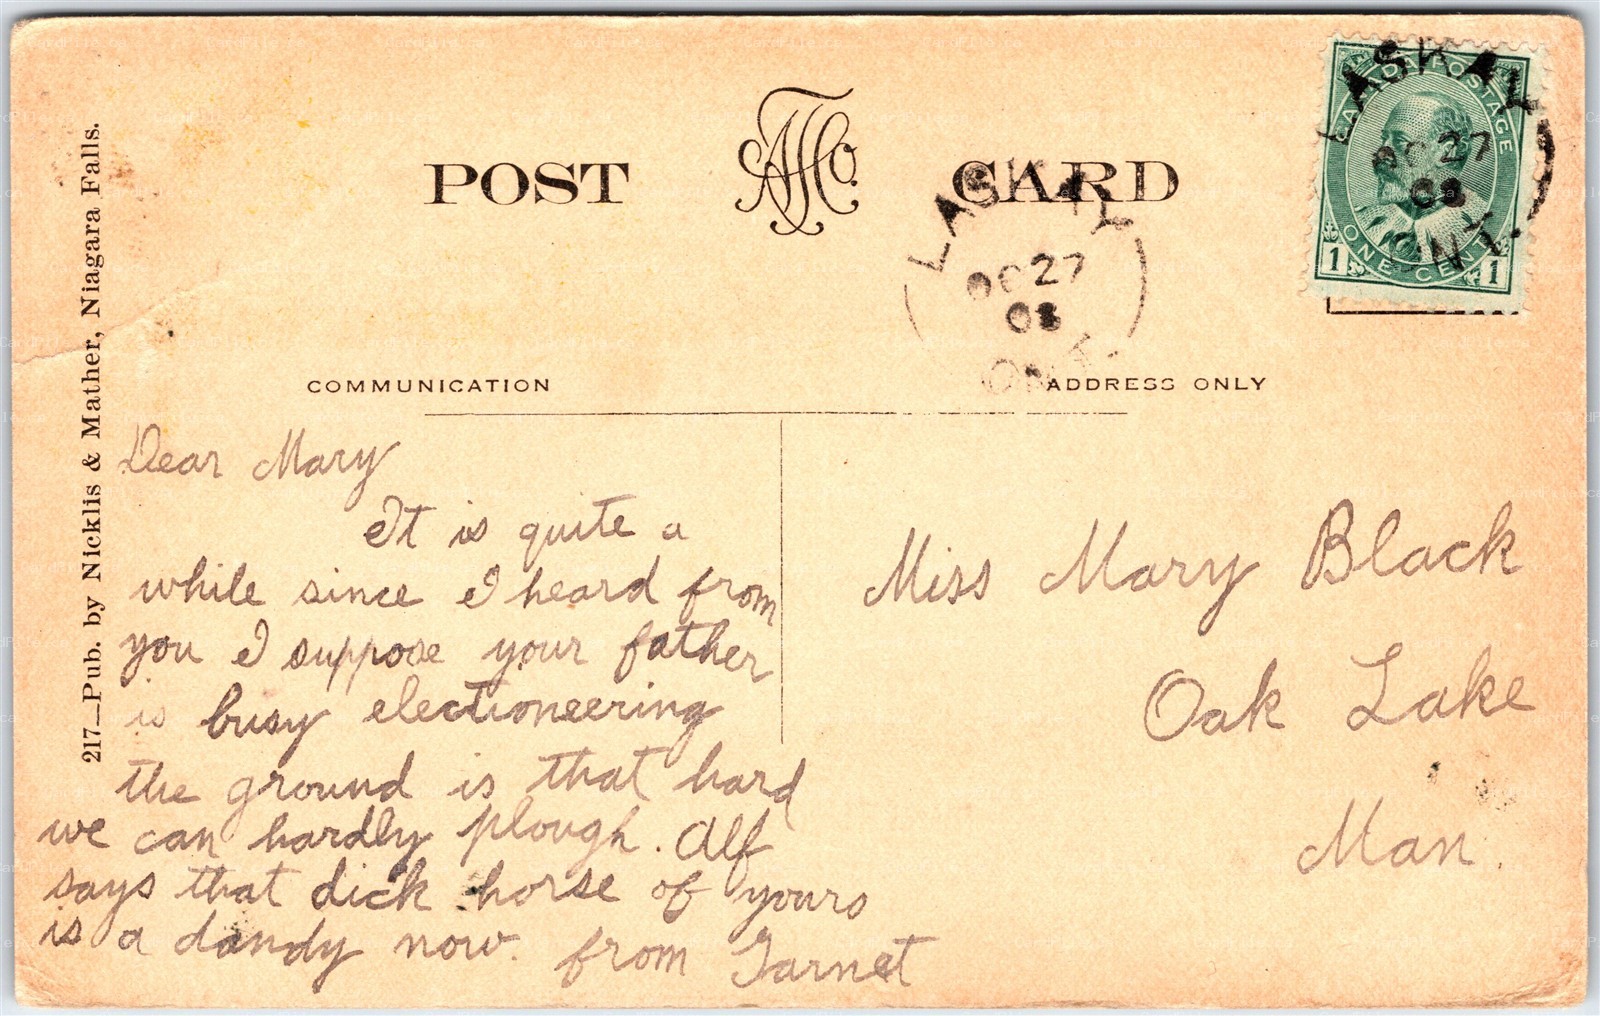 POST CARD
CANADA POSTAGE
ONE CENT
1 1
LASKAY
OC 27
08
ONT.
LASKAY
OC 27
08
ONT.
217—Pub. by Nicklis & Mather, Niagara Falls.
COMMUNICATION
ADDRESS ONLY
Dear Mary
It is quite a
while since I heard from
you I suppose your father
is busy electioneering
the ground is that hard
we can hardly plough. Alf
says that dick horse of yours
is a dandy now. from Garnet
Miss Mary Black
Oak Lake
Man.